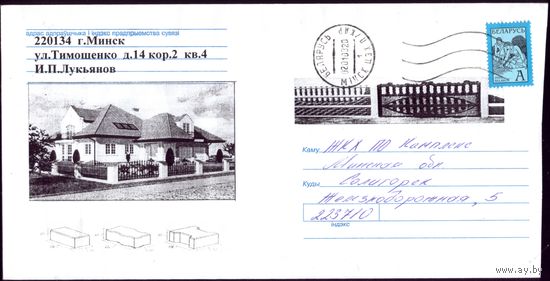 адрас адпраўшчыка і індэкс прадпрыемства сувязі
220134 г.Минск
ул.Тимошенко д.14 кор.2 кв.4
И.П.Лукьянов
БЕЛАРУСЬ
МІНСК
БЕЛАРУСЬ
A
Каму ЖКХ ТП Комплекс
Минская обл.
Куды Солигорск
Железнодорожная, 5
223710
індэкс
www.ay.by